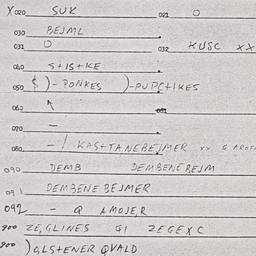 X 020 SUK 021 O
030 BEJML
031 O 032 KUSC XX
040 S+IS+KE
050 $ )-PONKES )-PUPC+IKES
060
070 —
080 - / KAS+TANEBEJMER XX G
090 DEMB DEMBENE BEJM
091 DEMBENE BEJMER
092 - Q AMOJE,R
900 ZE,GLINES QI ZEGEXC
900 )GLS+ENER QVALD